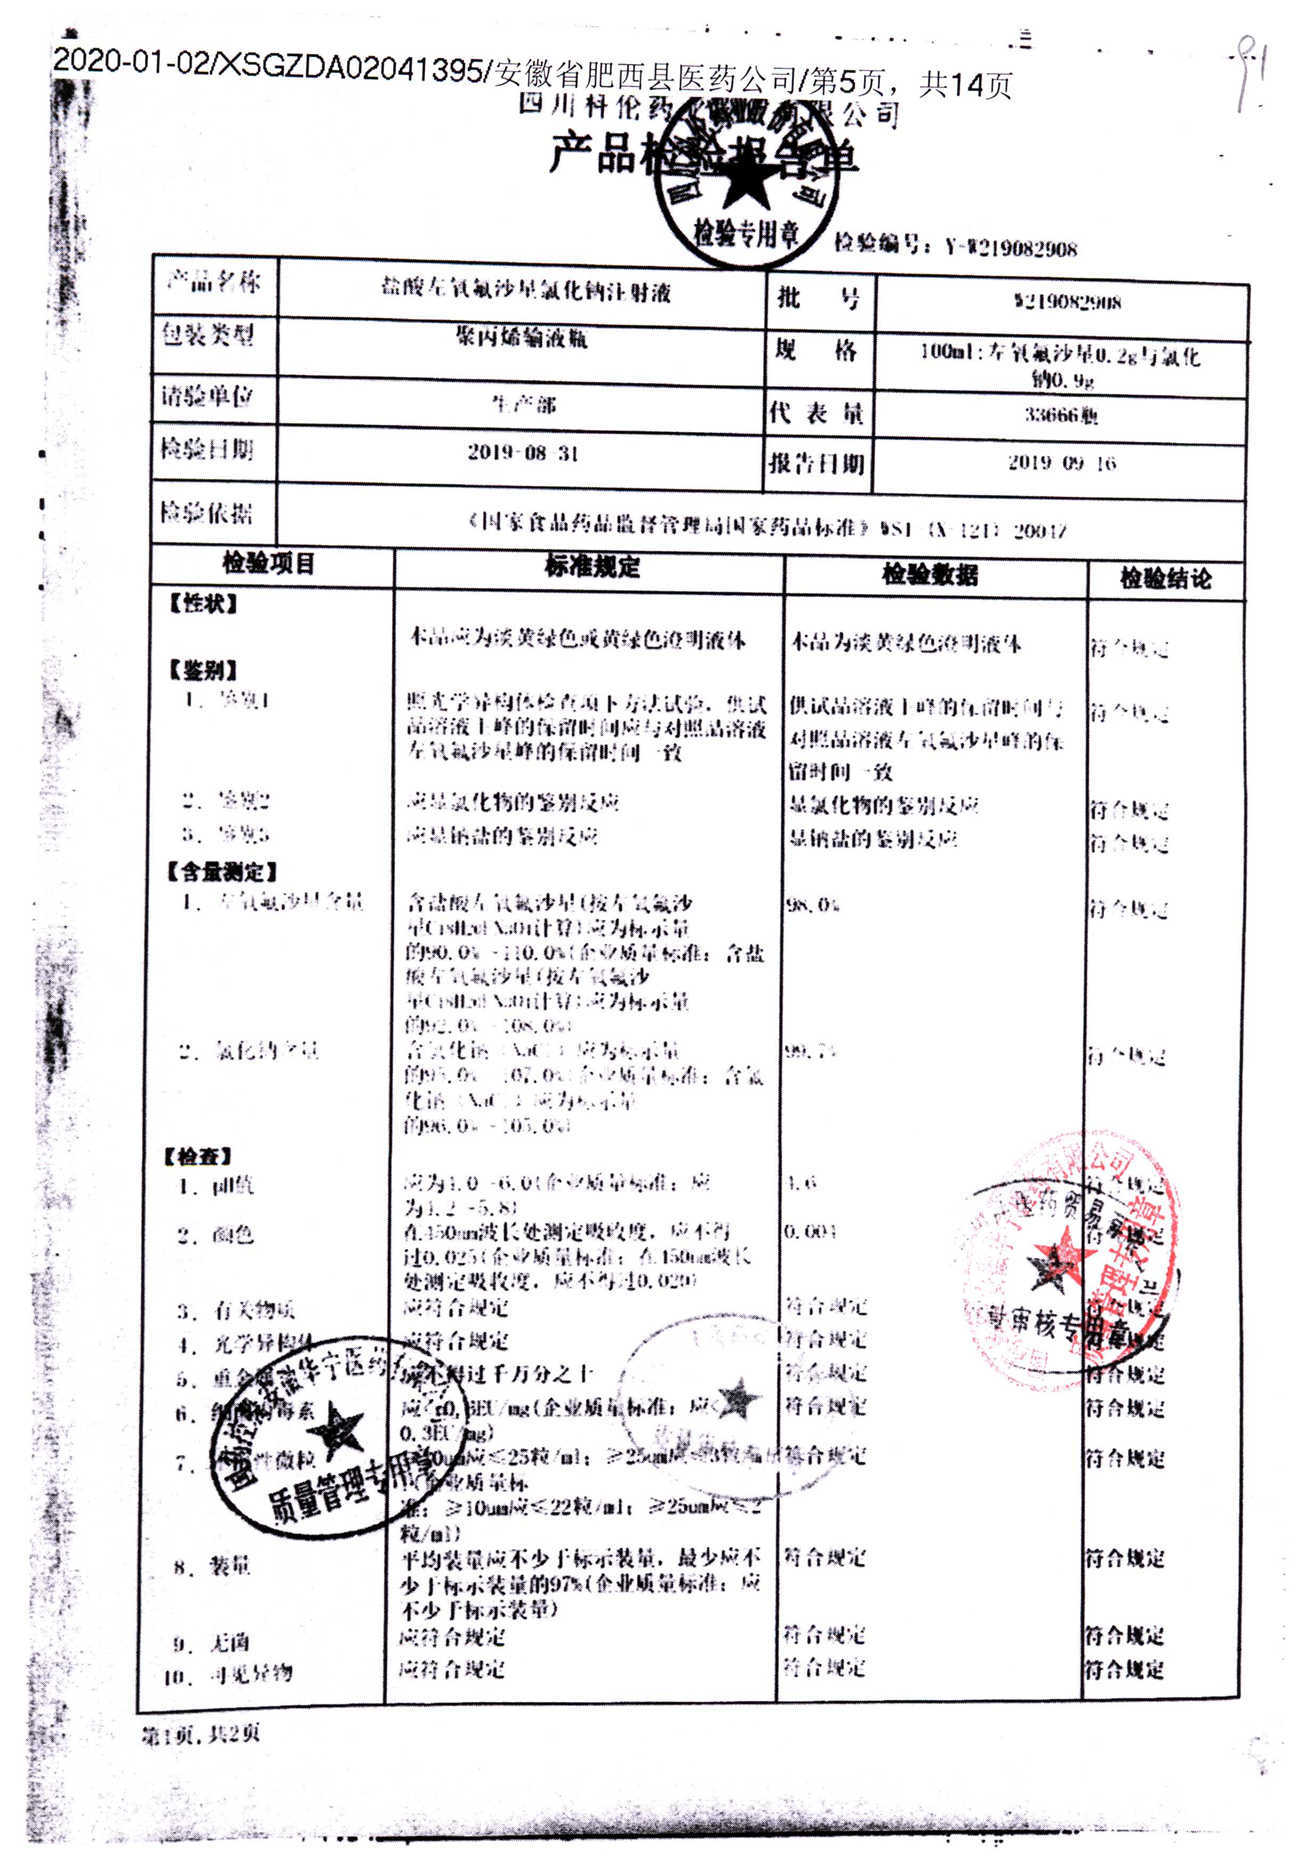 2020-01-02/XSGZDA02041395/安徽省肥西县医药公司/第5页，共14页
四川科伦药 有限公司
产品检验报告单
检验专用章
检验编号：Y-W219082908
产品名称 盐酸左氧氟沙星氯化钠注射液 批 号 W219082908
包装类型 聚丙烯输液瓶 规 格 100ml:左氧氟沙星0.2g与氯化
钠0.9g
请验单位 生产部 代 表 量 33666瓶
检验日期 2019-08-31 报告日期 2019-09-16
检验依据 《国家食品药品监督管理局国家药品标准》WS1-(X-121)-2004Z
检验项目 标准规定 检验数据 检验结论
【性状】
本品应为淡黄绿色或黄绿色澄明液体 本品为淡黄绿色澄明液体 符合规定
【鉴别】
1. 鉴别1 照光学异构体检查项下方法试验，供试 供试品溶液主峰的保留时间与 符合规定
品溶液主峰的保留时间应与对照品溶液 对照品溶液左氧氟沙星峰的保
左氧氟沙星峰的保留时间一致 留时间一致
2. 鉴别2 应显氯化物的鉴别反应 显氯化物的鉴别反应 符合规定
3. 鉴别3 应显钠盐的鉴别反应 显钠盐的鉴别反应 符合规定
【含量测定】
1. 左氧氟沙星含量 含盐酸左氧氟沙星(按左氧氟沙 98.0% 符合规定
星 计算)应为标示量
的90.0%-110.0%(企业质量标准：含盐
酸左氧氟沙星(按左氧氟沙
星 计算)应为标示量
的92.0%-108.0%)
2. 氯化钠含量 含氯化钠（NaCl）应为标示量 99.7% 符合规定
的95.0%-107.0%(企业质量标准：含氯
化钠（NaCl）应为标示量
的96.0%-105.0%)
【检查】
1. pH值 应为4.0-6.0(企业质量标准：应 4.6 符合规定
为4.2-5.8)
2. 颜色 在450nm波长处测定吸收度，应不得 0.004 符合规定
过0.025(企业质量标准：在450nm波长
处测定吸收度，应不得过0.020)
3. 有关物质 应符合规定 符合规定 符合规定
4. 光学异构体 应符合规定 符合规定 符合规定
5. 重金属 应不得过千万分之十 符合规定 符合规定
6. 细菌内毒素 应<0.5EU/mg(企业质量标准：应< 符合规定 符合规定
0.3EU/mg)
7. 性微粒 10um应≤25粒/ml；≥25um应≤3粒/ml 符合规定 符合规定
(企业质量标
准：≥10um应≤22粒/ml；≥25um应≤2
粒/ml)
8. 装量 平均装量应不少于标示装量，最少应不 符合规定 符合规定
少于标示装量的97%(企业质量标准：应
不少于标示装量)
9. 无菌 应符合规定 符合规定 符合规定
10. 可见异物 应符合规定 符合规定 符合规定
质量管理专用章
审核专用章
管理专用章
第1页,共2页